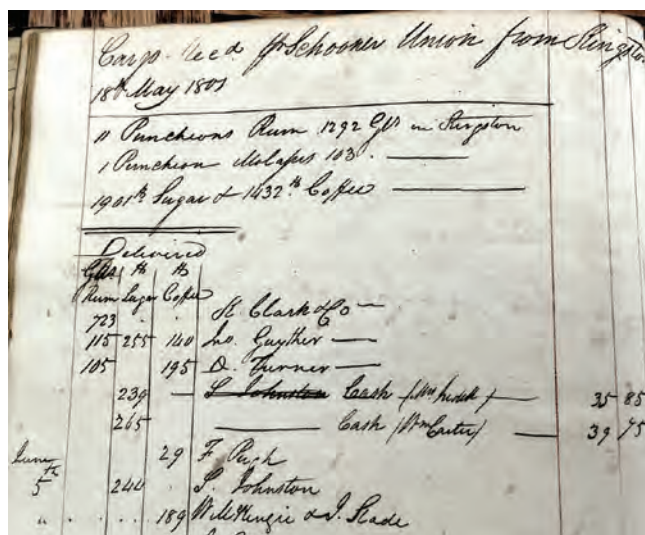 Cargo Recd pr Schooner Union from Kingston
18th May 1801
11 Puncheons Rum 1292 Glls in Kingston
1 Puncheon Molasses 103.
1901 lb Sugar & 1432 lb Coffee
Delivered
Glls lb lb
Rum Sugar Coffee
723 . H. Clark & Co
115 255 140 Jno. Guyther
105 195 D. Turner
239 — S Johnston Cash (Mrs ) 35 85
265 Cash (Wm Carter) 39 75
29 F. Pugh
June 5th 240 . S. Johnston
" . . ... 189 W McKenzie & J. Slade